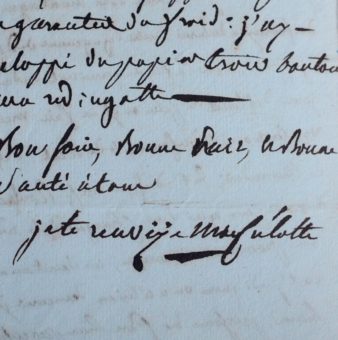 garantir du froid : j'ay
veloppé du papier trois boutons
ma redingotte
Bon soir, Bonne Nuit, et Bonne
Santé à tous
je te renvoye Ma Culotte